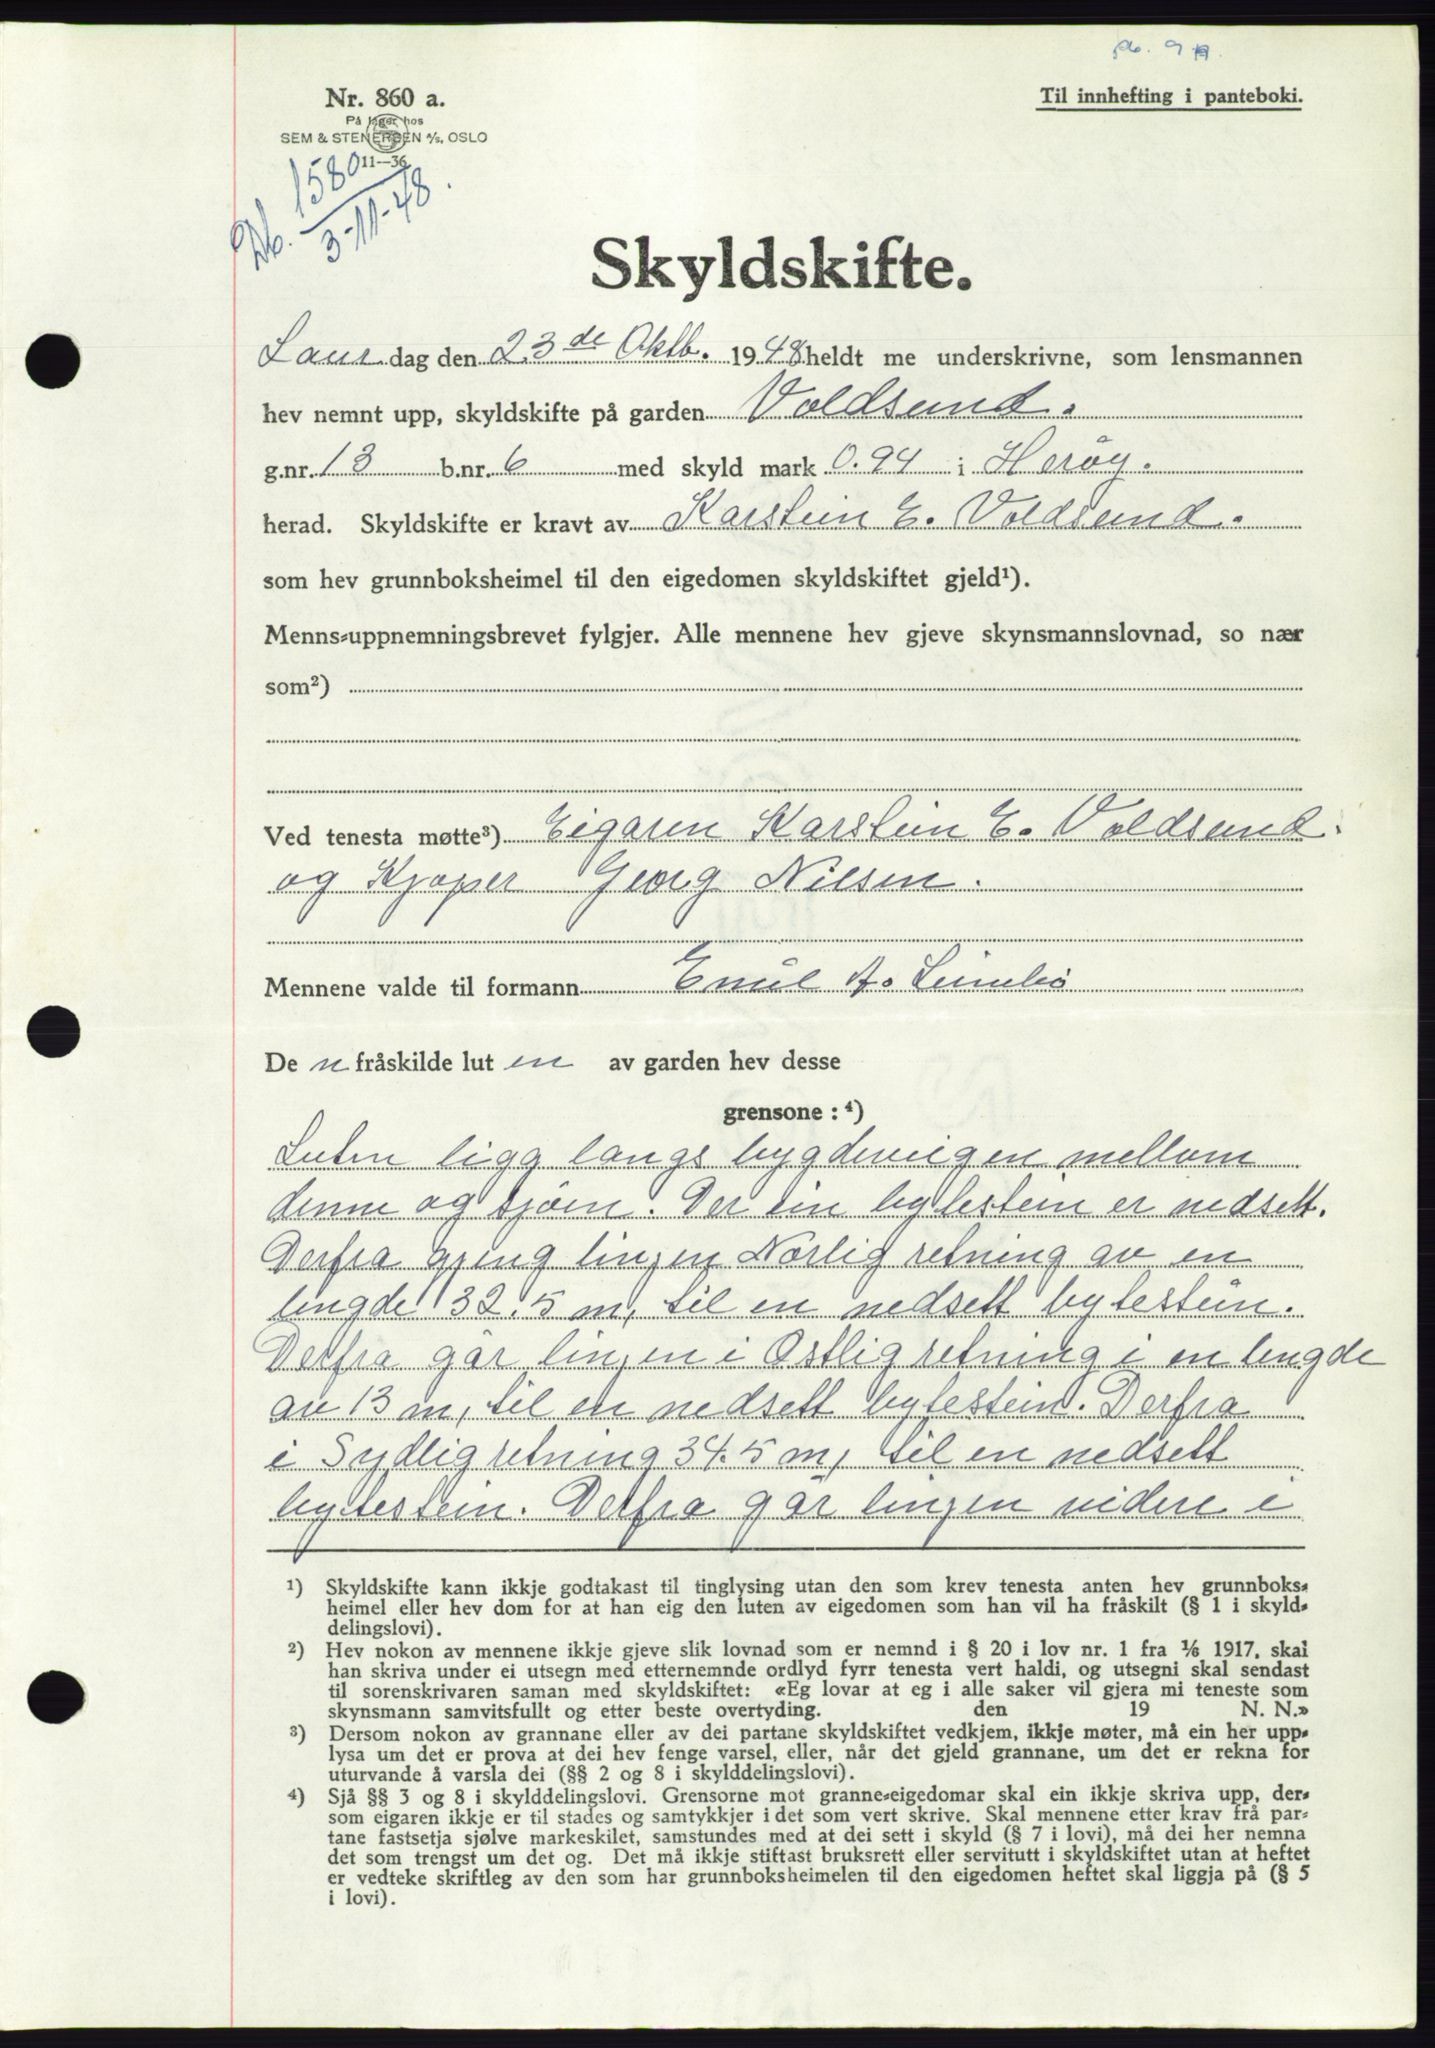 pb. 9
Nr. 860 a.
Til innhefting i panteboki.
På lager hos
SEM & STENERSEN A/S, OSLO
11—36
Db. 1580
3-11-48.
Skyldskifte.
Laur dag den 23de Oktb. 1948 heldt me underskrivne, som lensmannen
hev nemnt upp, skyldskifte på garden Voldsund.
g.nr. 13 b.nr. 6 med skyld mark 0.94 i Herøy.
herad. Skyldskifte er kravt av Karstein E. Voldsund.
som hev grunnboksheimel til den eigedomen skyldskiftet gjeld¹).
Menns-uppnemningsbrevet fylgjer. Alle mennene hev gjeve skynsmannslovnad, so nær
som²)
Ved tenesta møtte³) Eigaren Karstein E. Voldsund.
og Kjøper Georg Nilsen.
Mennene valde til formann Emil A.
De n fråskilde lut en av garden hev desse
grensone : ⁴)
Luten ligg langs bygdeveigen mellom
denne og sjøen. Der ein bytestein er nedsett.
Derfra gjeng linjen Nørlig retning av en
lengde 32.5 m, til en nedsett bytestein.
Derfra går linjen i Østlig retning i en lengde
av 13 m, til en nedsett bytestein. Derfra
i Sydlig retning 34.5 m, til en nedsett
bytestein. Derfra går linjen videre i
¹) Skyldskifte kann ikkje godtakast til tinglysing utan den som krev tenesta anten hev grunnboks-
heimel eller hev dom for at han eig den luten av eigedomen som han vil ha fråskilt (§ 1 i skyld-
delingslovi).
²) Hev nokon av mennene ikkje gjeve slik lovnad som er nemnd i § 20 i lov nr. 1 fra 1/6 1917, skal
han skriva under ei utsegn med etternemnde ordlyd fyrr tenesta vert haldi, og utsegni skal sendast
til sorenskrivaren saman med skyldskiftet: «Eg lovar at eg i alle saker vil gjera mi teneste som
skynsmann samvitsfullt og etter beste overtyding. den 19 N. N.»
³) Dersom nokon av grannane eller av dei partane skyldskiftet vedkjem, ikkje møter, må ein her upp-
lysa um det er prova at dei hev fenge varsel, eller, når det gjeld grannane, um det er rekna for
uturvande å varsla dei (§§ 2 og 8 i skylddelingslovi).
⁴) Sjå §§ 3 og 8 i skylddelingslovi. Grensorne mot granne-eigedomar skal ein ikkje skriva upp, der-
som eigaren ikkje er til stades og samtykkjer i det som vert skrive. Skal mennene etter krav frå par-
tane fastsetja sjølve markeskilet, samstundes med at dei sett i skyld (§ 7 i lovi), må dei her nemna
det som trengst um det og. Det må ikkje stiftast bruksrett eller servitutt i skyldskiftet utan at heftet
er vedteke skriftleg av den som har grunnboksheimelen til den eigedomen heftet skal liggja på (§ 5
i lovi).